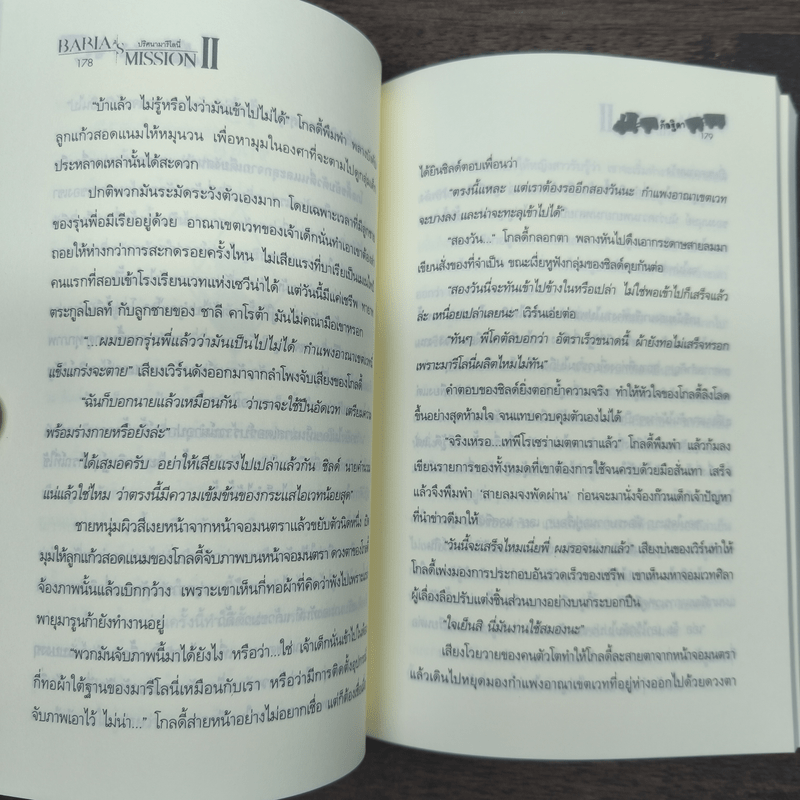 BARIA'S ปริศนามารีโลนี่
178 MISSION II
"บ้าแล้ว ไม่รู้หรือไงว่ามันเข้าไปไม่ได้" โกลดี้พึมพำ พลาง
ลูกแก้วสอดแนมให้หมุนวน เพื่อหามุมในองศาที่จะตามไปดู
ประหลาดเหล่านั้นได้สะดวก
ปกติพวกมันระมัดระวังตัวเองมาก โดยเฉพาะเวลาที่มี
ของรุ่นพี่อมีเรียอยู่ด้วย อาณาเขตเวทของเจ้าเด็กนั่นทำเอาเขา
ถอยให้ห่างกว่าการสะกดรอยครั้งไหน ไม่เสียแรงที่บาเรียเป็น
คนแรกที่สอบเข้าโรงเรียนเวทแห่งเซวีน่าได้ แต่วันนี้มีแค่เชรีพ
ตระกูลโบลท์ กับลูกชายของ ซาลี คาโรต้า มันไม่คณามือเขาหรอก
"...ผมบอกรุ่นพี่แล้วว่ามันเป็นไปไม่ได้ กำแพงอาณาเขตเวท
แข็งแกร่งจะตาย" เสียงเวิร์นดังออกมาจากลำโพงจับเสียงของโกลดี้
"ฉันก็บอกนายแล้วเหมือนกัน ว่าเราจะใช้ปืนอัดเวท เตรียม
พร้อมร่างกายหรือยังล่ะ"
"ได้เสมอครับ อย่าให้เสียแรงไปเปล่าแล้วกัน ชิลด์ นาย
แน่แล้วใช่ไหม ว่าตรงนี้มีความเข้มข้นของกระแสไอเวทน้อยสุด"
ชายหนุ่มผิวสีเงยหน้าจากหน้าจอมนตราแล้วขยับตัวนิดหนึ่ง
มุมให้ลูกแก้วสอดแนมของโกลดี้จับภาพบนหน้าจอมนตรา ดวงตา
จ้องภาพนั้นแล้วเบิกกว้าง เพราะเขาเห็นกี่ทอผ้าที่คิดว่าพังไปเพราะ
พายุมารูนก้ายังทำงานอยู่
"พวกมันจับภาพนี้มาได้ยังไง หรือว่า...ใช่ เจ้าเด็กนั่นเข้าไป
กี่ทอผ้าใต้ฐานของมารีโลนี่เหมือนกับเรา หรือว่ามีการติดตั้ง
จับภาพเอาไว้ ไม่น่า..." โกลดี้ส่ายหน้าอย่างไม่อยากเชื่อ แต่ก็ต้อง
II กัลฐิดา
179
ได้ยินชิลด์ตอบเพื่อนว่า
"ตรงนี้แหละ แต่เราต้องรออีกสองวันนะ กำแพงอาณาเขตเวท
จะบางลง และน่าจะทะลุเข้าไปได้"
"สองวัน..." โกลดี้กลอกตา พลางหันไปดึงเอากระดาษสายลมมา
เขียนสั่งของที่จำเป็น ขณะเงี่ยหูฟังกลุ่มของชิลด์คุยกันต่อ
"สองวันนี้จะทันเข้าไปข้างในหรือเปล่า ไม่ใช่พอเข้าไปก็เสร็จแล้ว
ล่ะ เหนื่อยเปล่าเลยนะ" เวิร์นเอ่ยต่อ
"ทันๆ พี่โคตัลบอกว่า อัตราเร็วขนาดนี้ ผ้ายังทอไม่เสร็จหรอก
เพราะมารีโลนี่ผลิตไหมไม่ทัน"
คำตอบของชิลด์ยิ่งตอกย้ำความจริง ทำให้หัวใจของโกลดี้ลิงโลด
ขึ้นอย่างสุดห้ามใจ จนแทบควบคุมตัวเองไม่ได้
"จริงเหรอ...เทพีโรเซว่าเมตตาเราแล้ว" โกลดี้พึมพำ แล้วก้มลง
เขียนรายการของทั้งหมดที่เขาต้องการใช้จนครบด้วยมือสั่นเทา เสร็จ
แล้วจึงพึมพำ 'สายลมจงพัดผ่าน' ก่อนจะมานั่งจ้องก๊วนเด็กเจ้าปัญหา
ที่นำข่าวดีมาให้
"วันนี้จะเสร็จไหมเนี่ยพี่ ผมรอจนเงกแล้ว" เสียงบ่นของเวิร์นทำให้
โกลดี้เพ่งมองการประกอบอันรวดเร็วของเชรีพ เขาเห็นมหาจอมเวทศิลา
ผู้เลื่องลือปรับแต่งชิ้นส่วนบางอย่างบนกระบอกปืน
"ใจเย็นสิ นี่มันงานใช้สมองนะ"
เสียงโวยวายของคนตัวโตทำให้โกลดี้ละสายตาจากหน้าจอมนตรา
แล้วเดินไปหยุดมองกำแพงอาณาเขตเวทที่อยู่ห่างออกไปด้วยดวงตา